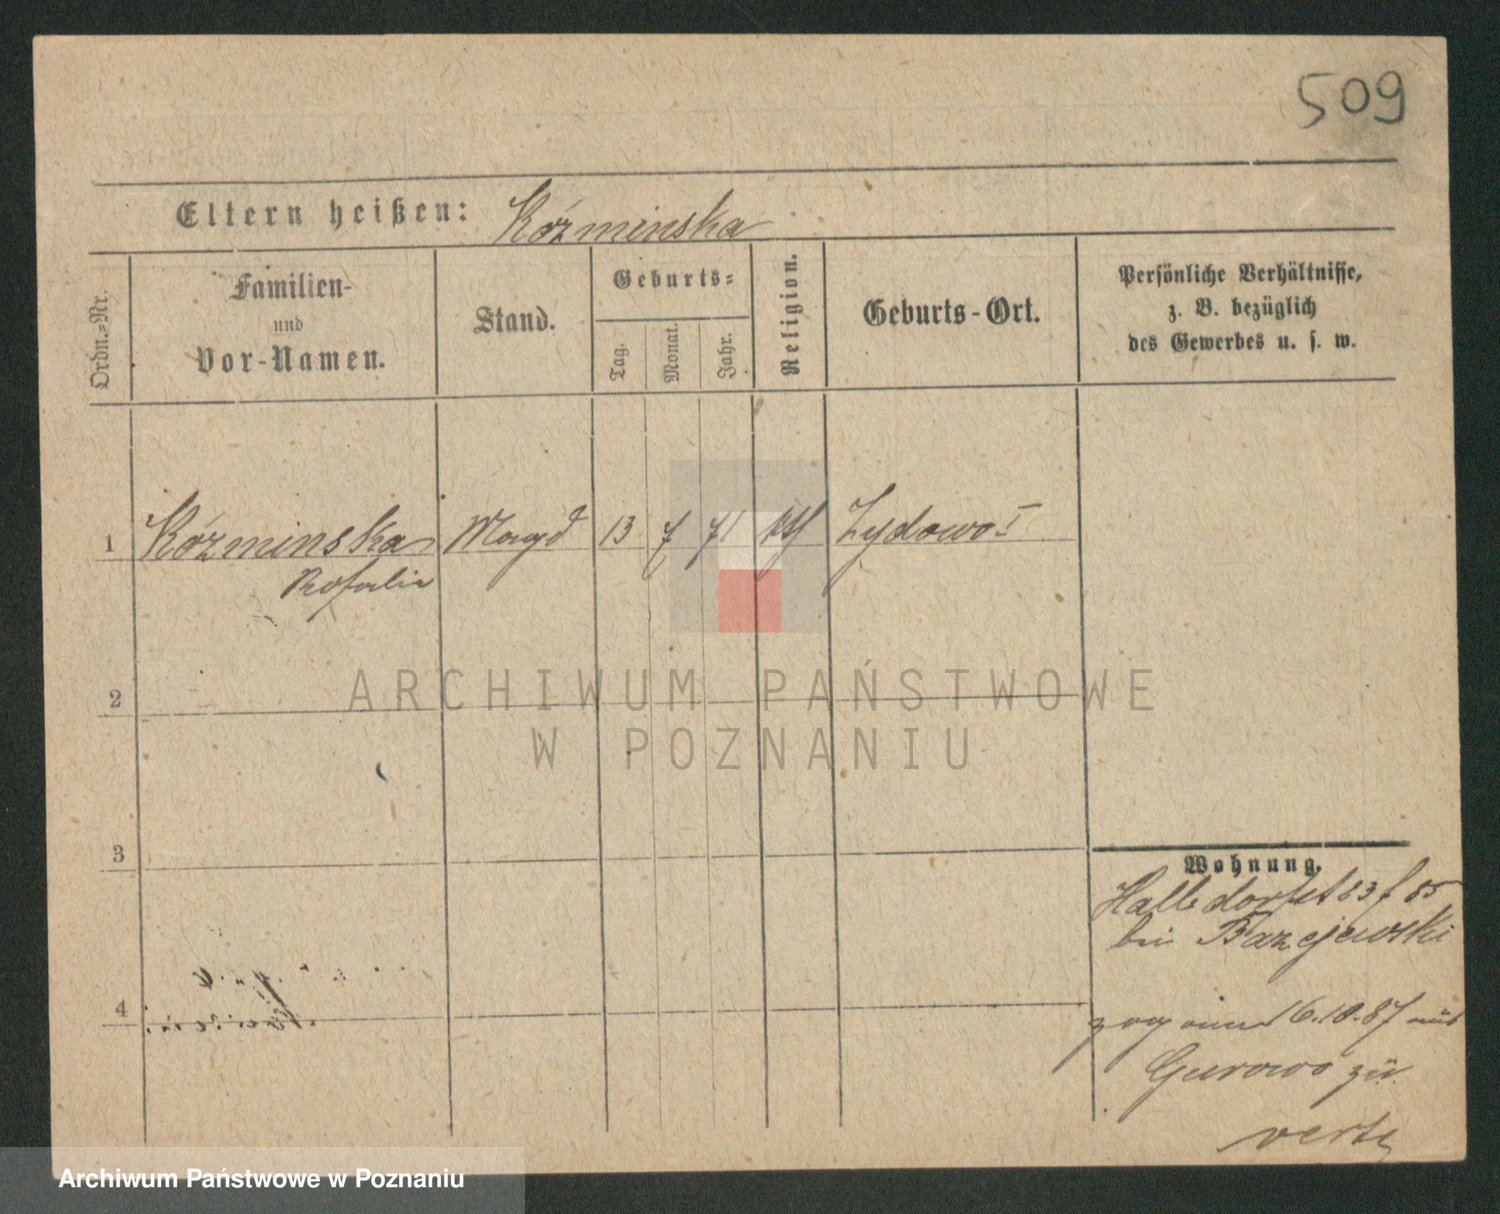 509
Eltern heißen: Kóżminska
Ordn.-Nr.
Familien-
und
Vor-Namen.
Stand.
Geburts-
Tag.
Monat.
Jahr.
Religion.
Geburts-Ort.
Persönliche Verhältnisse,
z. B. bezüglich
des Gewerbes u. s. w.
1 Kóżminska Magd 13 7 71 kth Zydowo I
Rosalie
ARCHIWUM PAŃSTWOWE
W POZNANIU
2
3
4
Wohnung.
Halbdorfst 83 f 85
bei Bazejewski
zog am 16.10.87 aus
Gurowo zu
verte
Archiwum Państwowe w Poznaniu